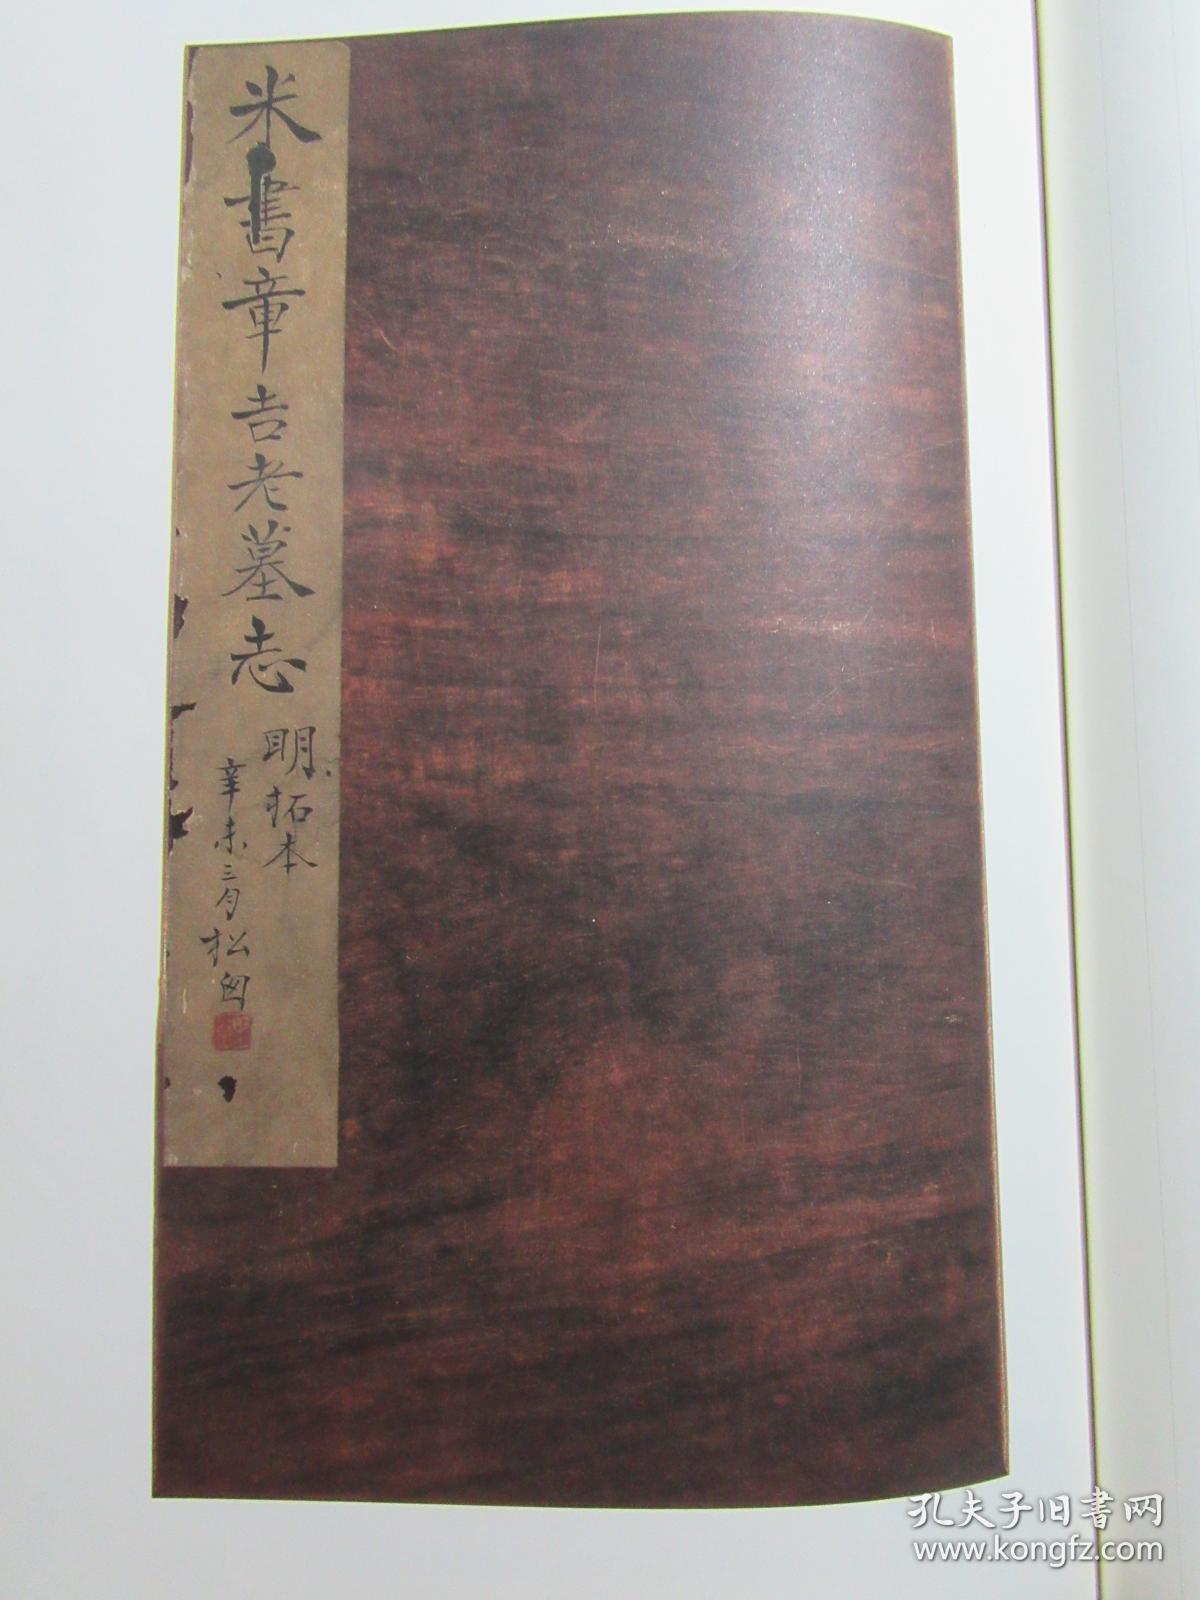 米書章吉老墓志
明拓本
辛未三月松匃
孔夫子旧书网
www.kongfz.com